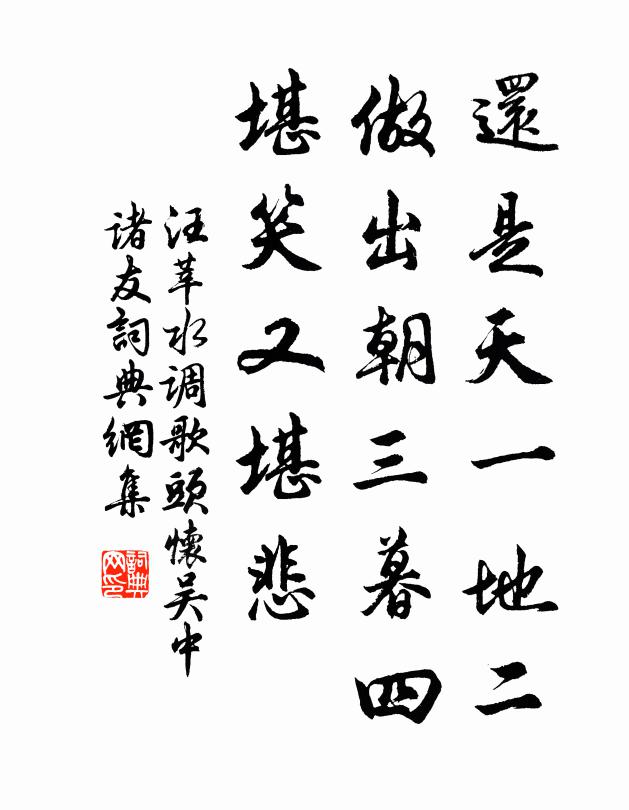 還是天一地二
做出朝三暮四
堪笑又堪悲
汪莘水调歌頭懷吴中
诸友詞典網集
詞典网印